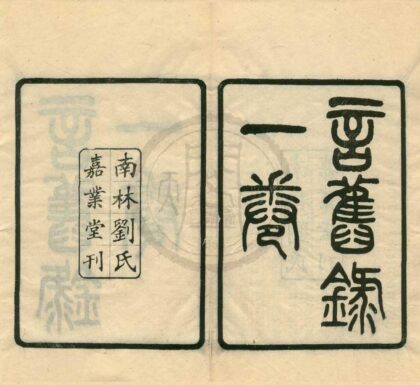 言舊錄
一卷
南林劉氏
嘉業堂刊